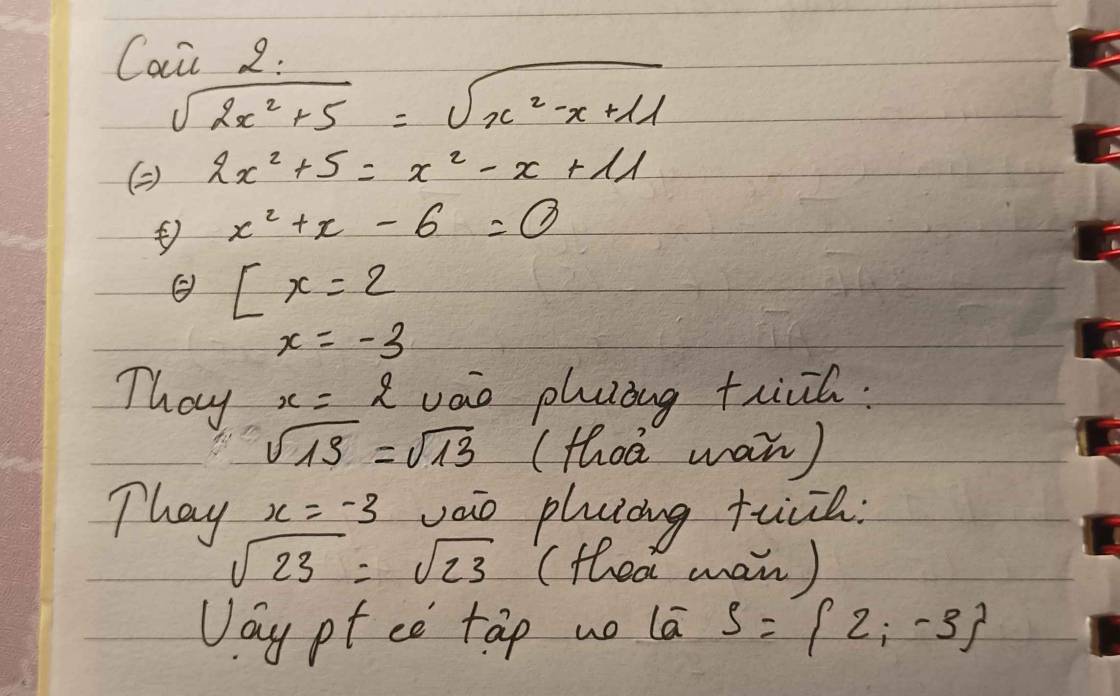 Câu 2:
√(2x² + 5) = √(x² - x + 11)
(=) 2x² + 5 = x² - x + 11
(=) x² + x - 6 = 0
(=) [ x = 2
x = -3
Thay x = 2 vào phương trình:
√13 = √13 (thoả mãn)
Thay x = -3 vào phương trình:
√23 = √23 (thoả mãn)
Vậy pt có tập no là S = {2; -3}